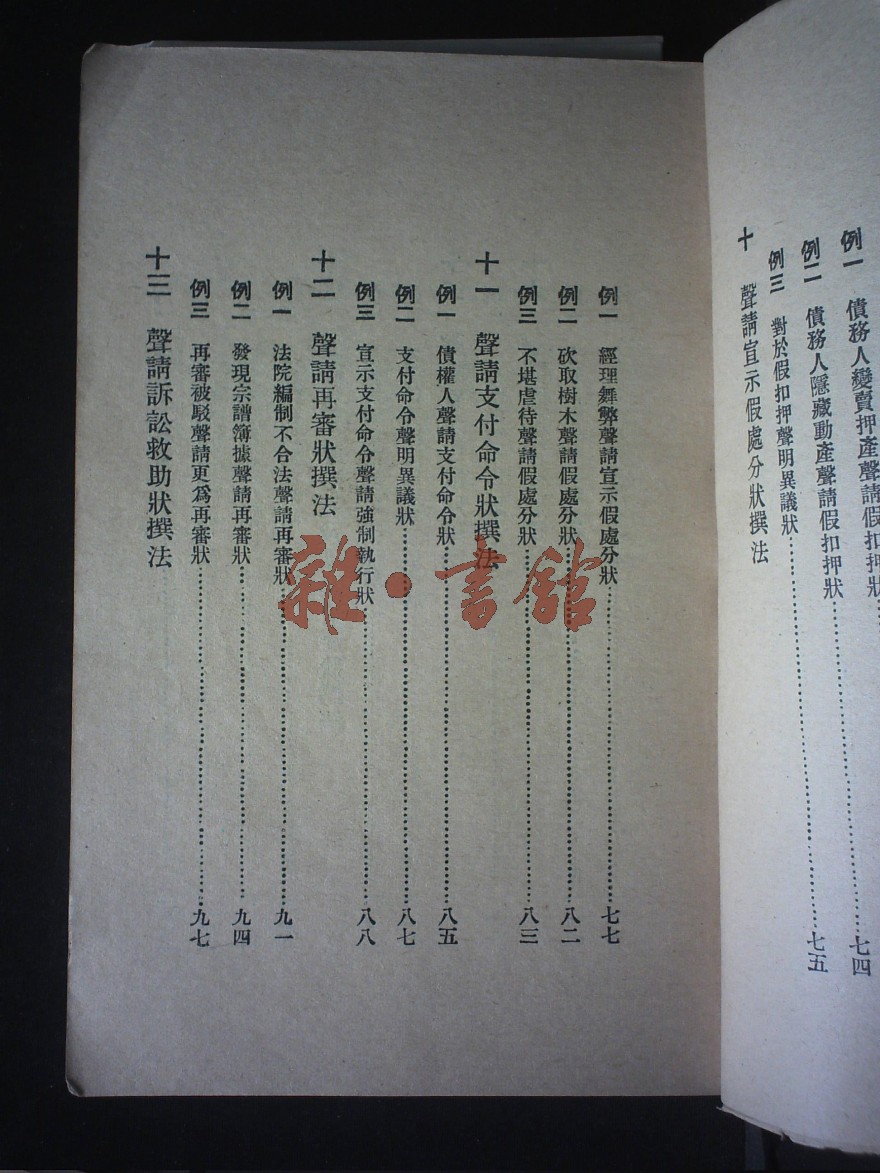 例一　債務人變賣押產聲請假扣押狀……七四
例二　債務人隱藏動產聲請假扣押狀……七五
例三　對於假扣押聲明異議狀……
十　聲請宣示假處分狀撰法
例一　經理舞弊聲請宣示假處分狀……七七
例二　砍取樹木聲請假處分狀……八二
例三　不堪虐待聲請假處分狀……八三
十一　聲請支付命令狀撰法
例一　債權人聲請支付命令狀……八五
例二　支付命令聲明異議狀……八七
例三　宣示支付命令聲請強制執行狀……八八
十二　聲請再審狀撰法
例一　法院編制不合法聲請再審狀……九一
例二　發現宗譜簿據聲請再審狀……九四
例三　再審被駁聲請更爲再審狀……九七
十三　聲請訴訟救助狀撰法
雜·書館